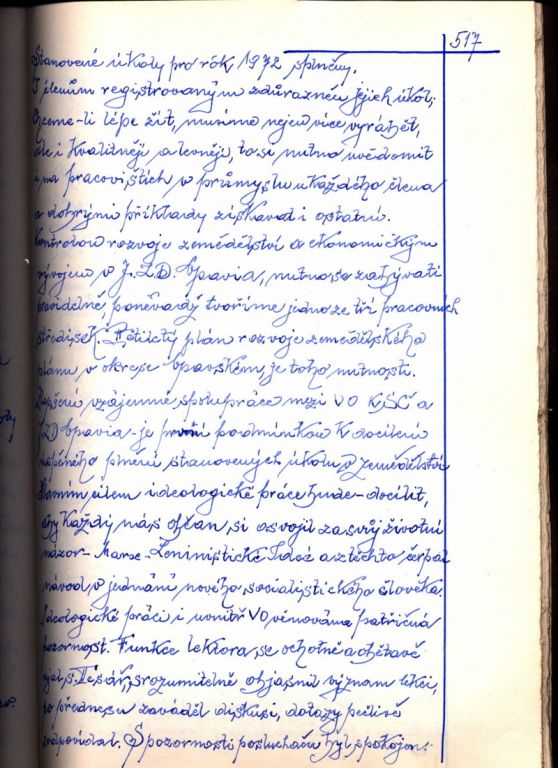 517
Stanovené úkoly pro rok 1972 splněny.
I členům registrovaným zdůrazněn jejich úkol,
chceme-li lépe žít, musíme nejen více vyrábět,
ale i kvalitněji a levněji, to si nutno uvědomit
i na pracovištích v průmyslu u každého člena
a dobrými příklady získávat i ostatní.
Kontrolou rozvoje zemědělství a ekonomickým
vývojem v J.Z.D. Opavia, nutno se zabývati
pravidelně, poněvadž tvoříme jedno ze tří pracovních
středisek. Pětiletý plán rozvoje zemědělského
plánu v okrese opavském, je toho nutností.
vzájemné spolupráce mezi VO KSČ a
JZD Opavia - je první podmínkou k docílení
úspěšného plnění stanovených úkolů v zemědělství
Hlavním cílem ideologické práce bude - docílit,
aby každý náš občan, si osvojil za svůj životní
názor - Marx-Leninistické Idee a z těchto čerpal
návod, v jednání nového, socialistického člověka.
Ideologické práci i uvnitř VO věnována patřičná
pozornost. Funkce lektora, se ochotně a obětavě
ujal, s. Tesář, srozumitelně objasnil význam lekcí,
po přednesu zaváděl diskusi, dotazy pečlivě
zodpovídal. S pozorností posluchačů byl spokojen.